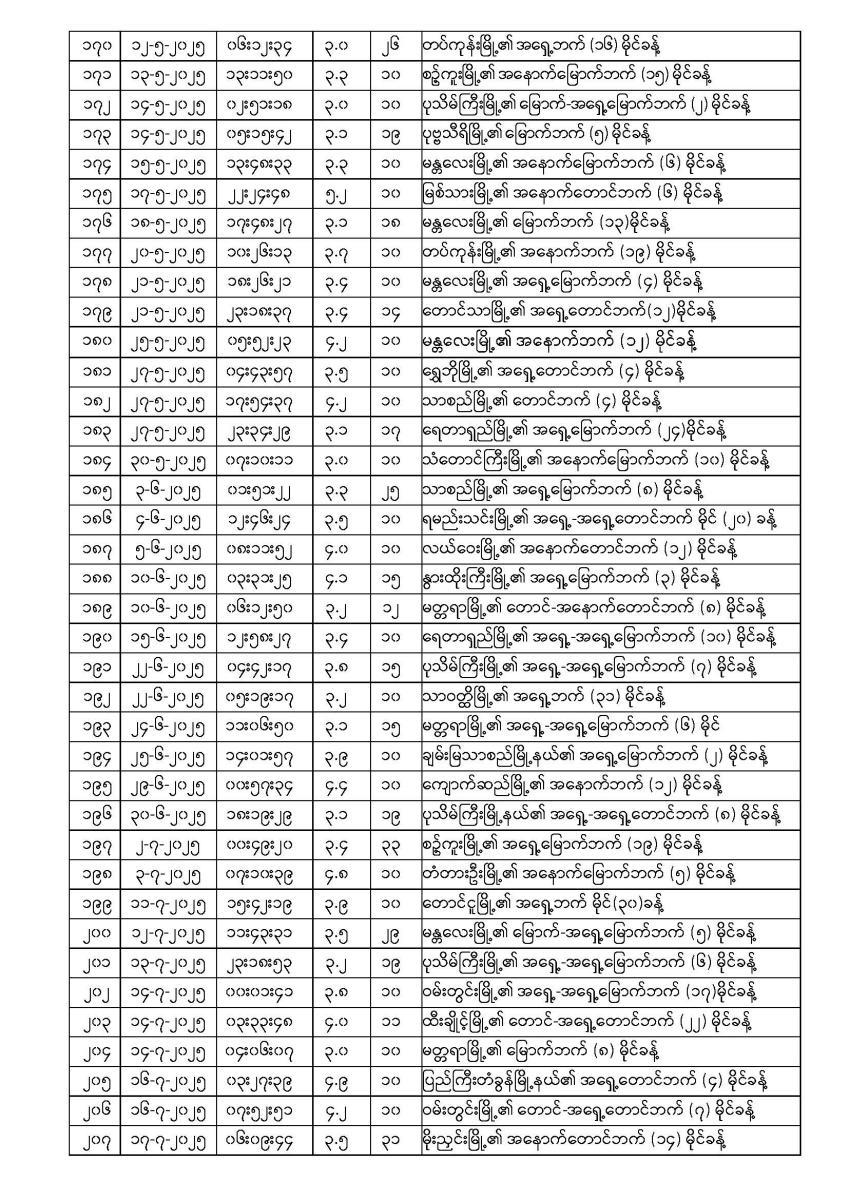 ၁၇၀ ၁၂-၅-၂၀၂၅ ၀၆း၁၂း၃၄ ၃.၀ ၂၆ တပ်ကုန်းမြို့၏ အရှေ့ဘက် (၁၆) မိုင်ခန့်
၁၇၁ ၁၃-၅-၂၀၂၅ ၁၃း၁၁း၅၀ ၃.၃ ၁၀ စဥ့်ကူးမြို့၏ အနောက်မြောက်ဘက် (၁၅) မိုင်ခန့်
၁၇၂ ၁၄-၅-၂၀၂၅ ၀၂း၅၁း၁၈ ၃.၀ ၁၀ ပုသိမ်ကြီးမြို့၏ မြောက်-အရှေ့မြောက်ဘက် (၂) မိုင်ခန့်
၁၇၃ ၁၄-၅-၂၀၂၅ ၀၅း၁၅း၄၂ ၃.၁ ၁၉ ပုဗ္ဗသီရိမြို့၏ မြောက်ဘက် (၅) မိုင်ခန့်
၁၇၄ ၁၅-၅-၂၀၂၅ ၁၃း၄၈း၃၃ ၃.၃ ၁၀ မန္တလေးမြို့၏ အနောက်မြောက်ဘက် (၆) မိုင်ခန့်
၁၇၅ ၁၇-၅-၂၀၂၅ ၂၂း၂၄း၄၈ ၅.၂ ၁၀ မြစ်သားမြို့၏ အနောက်တောင်ဘက် (၆) မိုင်ခန့်
၁၇၆ ၁၈-၅-၂၀၂၅ ၁၇း၄၈း၂၇ ၃.၁ ၁၈ မန္တလေးမြို့၏ မြောက်ဘက် (၁၃)မိုင်ခန့်
၁၇၇ ၂၀-၅-၂၀၂၅ ၁၀း၂၆း၁၃ ၃.၇ ၁၀ တပ်ကုန်းမြို့၏ အနောက်ဘက် (၁၉) မိုင်ခန့်
၁၇၈ ၂၁-၅-၂၀၂၅ ၁၈း၂၆း၂၁ ၃.၄ ၁၀ မန္တလေးမြို့၏ အရှေ့မြောက်ဘက် (၄) မိုင်ခန့်
၁၇၉ ၂၁-၅-၂၀၂၅ ၂၃း၁၈း၃၇ ၃.၄ ၁၄ တောင်သာမြို့၏ အရှေ့တောင်ဘက်(၁၂)မိုင်ခန့်
၁၈၀ ၂၅-၅-၂၀၂၅ ၀၅း၅၂း၂၃ ၄.၂ ၁၀ မန္တလေးမြို့၏ အနောက်ဘက် (၁၂) မိုင်ခန့်
၁၈၁ ၂၇-၅-၂၀၂၅ ၀၄း၄၃း၅၇ ၃.၅ ၁၀ ရွှေဘိုမြို့၏ အရှေ့တောင်ဘက် (၄) မိုင်ခန့်
၁၈၂ ၂၇-၅-၂၀၂၅ ၁၇း၅၄း၃၇ ၄.၂ ၁၀ သာစည်မြို့၏ တောင်ဘက် (၄) မိုင်ခန့်
၁၈၃ ၂၇-၅-၂၀၂၅ ၂၃း၃၄း၂၉ ၃.၁ ၁၇ ရေတာရှည်မြို့၏ အရှေ့မြောက်ဘက် (၂၄)မိုင်ခန့်
၁၈၄ ၃၀-၅-၂၀၂၅ ၀၇း၁၀း၁၁ ၃.၀ ၁၀ သံတောင်ကြီးမြို့၏ အနောက်မြောက်ဘက် (၁၀) မိုင်ခန့်
၁၈၅ ၃-၆-၂၀၂၅ ၀၁း၅၁း၂၂ ၃.၃ ၂၅ သာစည်မြို့၏ အရှေ့မြောက်ဘက် (၈) မိုင်ခန့်
၁၈၆ ၄-၆-၂၀၂၅ ၁၂း၄၆း၂၄ ၃.၅ ၁၀ ရမည်းသင်းမြို့၏ အရှေ့-အရှေ့တောင်ဘက် မိုင် (၂၀) ခန့်
၁၈၇ ၅-၆-၂၀၂၅ ၀၈း၁၁း၅၂ ၄.၀ ၁၀ လယ်ဝေးမြို့၏ အနောက်တောင်ဘက် (၁၂) မိုင်ခန့်
၁၈၈ ၁၀-၆-၂၀၂၅ ၀၃း၃၁း၂၅ ၄.၁ ၁၅ နွားထိုးကြီးမြို့၏ အရှေ့မြောက်ဘက် (၃) မိုင်ခန့်
၁၈၉ ၁၀-၆-၂၀၂၅ ၀၆း၁၂း၅၀ ၃.၂ ၁၂ မတ္တရာမြို့၏ တောင်-အနောက်တောင်ဘက် (၈) မိုင်ခန့်
၁၉၀ ၁၅-၆-၂၀၂၅ ၁၂း၅၈း၂၇ ၃.၄ ၁၀ ရေတာရှည်မြို့၏ အရှေ့-အရှေ့မြောက်ဘက် (၁၀) မိုင်ခန့်
၁၉၁ ၂၂-၆-၂၀၂၅ ၀၄း၄၂း၁၇ ၃.၈ ၁၅ ပုသိမ်ကြီးမြို့၏ အရှေ့-အရှေ့မြောက်ဘက် (၇) မိုင်ခန့်
၁၉၂ ၂၂-၆-၂၀၂၅ ၀၅း၁၉း၁၇ ၃.၂ ၁၀ သာဝတ္ထိမြို့၏ အရှေ့ဘက် (၃၁) မိုင်ခန့်
၁၉၃ ၂၄-၆-၂၀၂၅ ၁၁း၀၆း၅၀ ၃.၁ ၁၅ မတ္တရာမြို့၏ အရှေ့-အရှေ့မြောက်ဘက် (၆) မိုင်
၁၉၄ ၂၅-၆-၂၀၂၅ ၁၄း၀၁း၅၇ ၃.၉ ၁၀ ချမ်းမြသာစည်မြို့နယ်၏ အရှေ့မြောက်ဘက် (၂) မိုင်ခန့်
၁၉၅ ၂၉-၆-၂၀၂၅ ၀၀း၅၇း၃၄ ၄.၄ ၁၀ ကျောက်ဆည်မြို့၏ အနောက်ဘက် (၁၂) မိုင်ခန့်
၁၉၆ ၃၀-၆-၂၀၂၅ ၁၈း၁၉း၂၉ ၃.၁ ၁၉ ပုသိမ်ကြီးမြို့နယ်၏ အရှေ့-အရှေ့တောင်ဘက် (၈) မိုင်ခန့်
၁၉၇ ၂-၇-၂၀၂၅ ၀၀း၄၉း၂၀ ၃.၄ ၃၃ စဥ့်ကူးမြို့၏ အရှေ့မြောက်ဘက် (၁၉) မိုင်ခန့်
၁၉၈ ၃-၇-၂၀၂၅ ၀၇း၁၀း၃၉ ၄.၈ ၁၀ တံတားဦးမြို့၏ အနောက်မြောက်ဘက် (၅) မိုင်ခန့်
၁၉၉ ၁၁-၇-၂၀၂၅ ၁၅း၄၂း၁၉ ၃.၉ ၁၀ တောင်ငူမြို့၏ အရှေ့ဘက် မိုင်(၃၀)ခန့်
၂၀၀ ၁၂-၇-၂၀၂၅ ၁၁း၄၃း၃၁ ၃.၅ ၂၉ မန္တလေးမြို့၏ မြောက်-အရှေ့မြောက်ဘက် (၅) မိုင်ခန့်
၂၀၁ ၁၃-၇-၂၀၂၅ ၂၃း၁၈း၅၃ ၃.၂ ၁၉ ပုသိမ်ကြီးမြို့၏ အရှေ့-အရှေ့မြောက်ဘက် (၆) မိုင်ခန့်
၂၀၂ ၁၄-၇-၂၀၂၅ ၀၀း၀၁း၄၁ ၃.၈ ၁၀ ဝမ်းတွင်းမြို့၏ အရှေ့-အရှေ့မြောက်ဘက် (၁၇)မိုင်ခန့်
၂၀၃ ၁၄-၇-၂၀၂၅ ၀၃း၃၃း၄၈ ၄.၀ ၁၁ ထီးချိုင့်မြို့၏ တောင်-အရှေ့တောင်ဘက် (၂၂) မိုင်ခန့်
၂၀၄ ၁၄-၇-၂၀၂၅ ၀၄း၀၆း၀၇ ၃.၀ ၁၀ မတ္တရာမြို့၏ မြောက်ဘက် (၈) မိုင်ခန့်
၂၀၅ ၁၆-၇-၂၀၂၅ ၀၃း၂၇း၃၉ ၄.၉ ၁၀ ပြည်ကြီးတံခွန်မြို့နယ်၏ အရှေ့တောင်ဘက် (၄) မိုင်ခန့်
၂၀၆ ၁၆-၇-၂၀၂၅ ၀၇း၅၂း၅၁ ၄.၂ ၁၀ ဝမ်းတွင်းမြို့၏ တောင်-အရှေ့တောင်ဘက် (၇) မိုင်ခန့်
၂၀၇ ၁၇-၇-၂၀၂၅ ၀၆း၀၉း၄၄ ၃.၅ ၃၁ မိုးညှင်းမြို့၏ အနောက်တောင်ဘက် (၁၄) မိုင်ခန့်